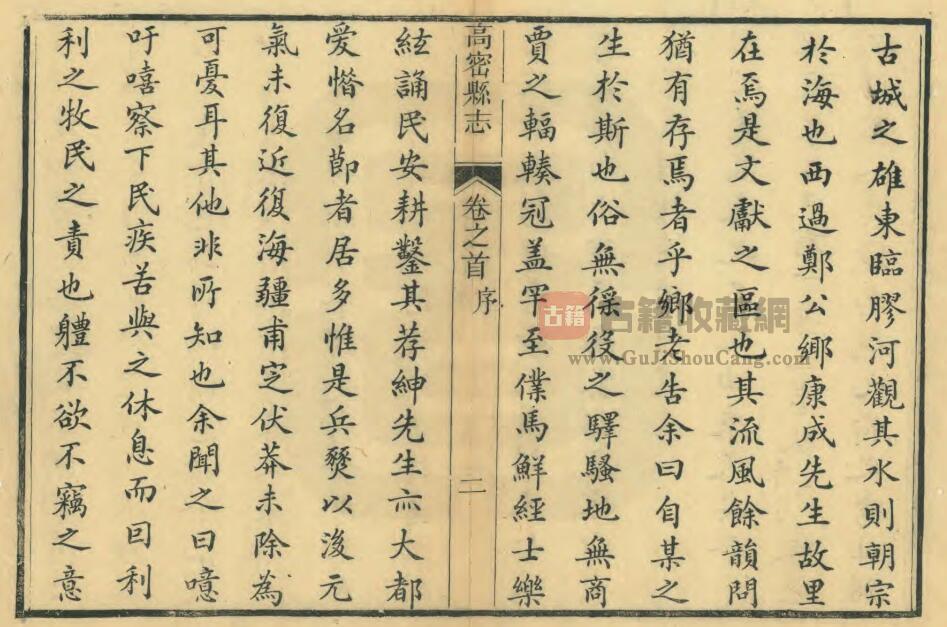 古城之雄東臨膠河觀其水則朝宗
於海也西過鄭公鄉康成先生故里
在焉是文獻之區也其流風餘韻問
猶有存焉者乎鄉老告余曰自某之
生於斯也俗無徭役之驛騷地無商
賈之輻輳冠盖罕至僕馬鮮經士樂
高密縣志
卷之首
序
二
絃誦民安耕鑿其荐紳先生亦大都
愛惜名節者居多惟是兵燹以後元
氣未復近復海疆甫定伏莽未除為
可憂耳其他非所知也余聞之曰噫
吁嘻察下民疾苦與之休息而因利
利之牧民之責也軆不欲不竊之意
古籍
古籍收藏網
www.GuJiShouCang.com